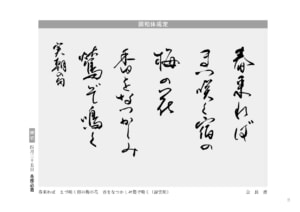 調和体規定
春来れば
まづ咲く宿の
梅の花
香をなつかしみ
鶯ぞ鳴く
実朝の句
春来れば まづ咲く宿の梅の花 香をなつかしみ鶯ぞ鳴く